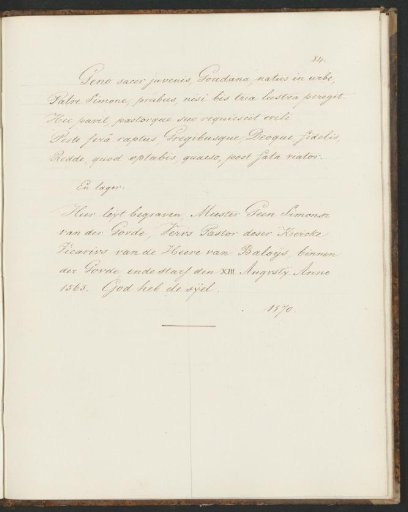 84.
Geno sacer juvenis, Goudana natus in urbe,
Patre Simone, probus, nisi bis tria lustra peregit.
Hic pavit, pastorque suo requiescit ovili
Peste ferâ raptus, Gregibusque, Deoque fidelis,
Redde, quod optabis, quaeso, post fata viator.
En lager.
Hier leyt begraven Meester Geen Simonsz
van der Goude, Verrs Pastor deser Kercke
Vicarivs van de Heere van Baloijs, binnen
der Goude ende starf den XIII Avgvsty Anno
1565. God heb de syel.
1570.